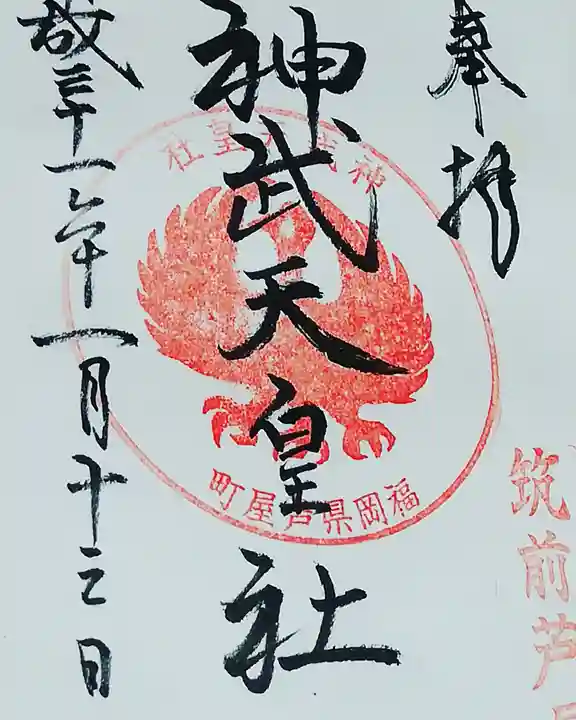 奉拝
筑前芦
神武天皇社
神武天皇社
福岡県芦屋町
成三十一年一月十三日